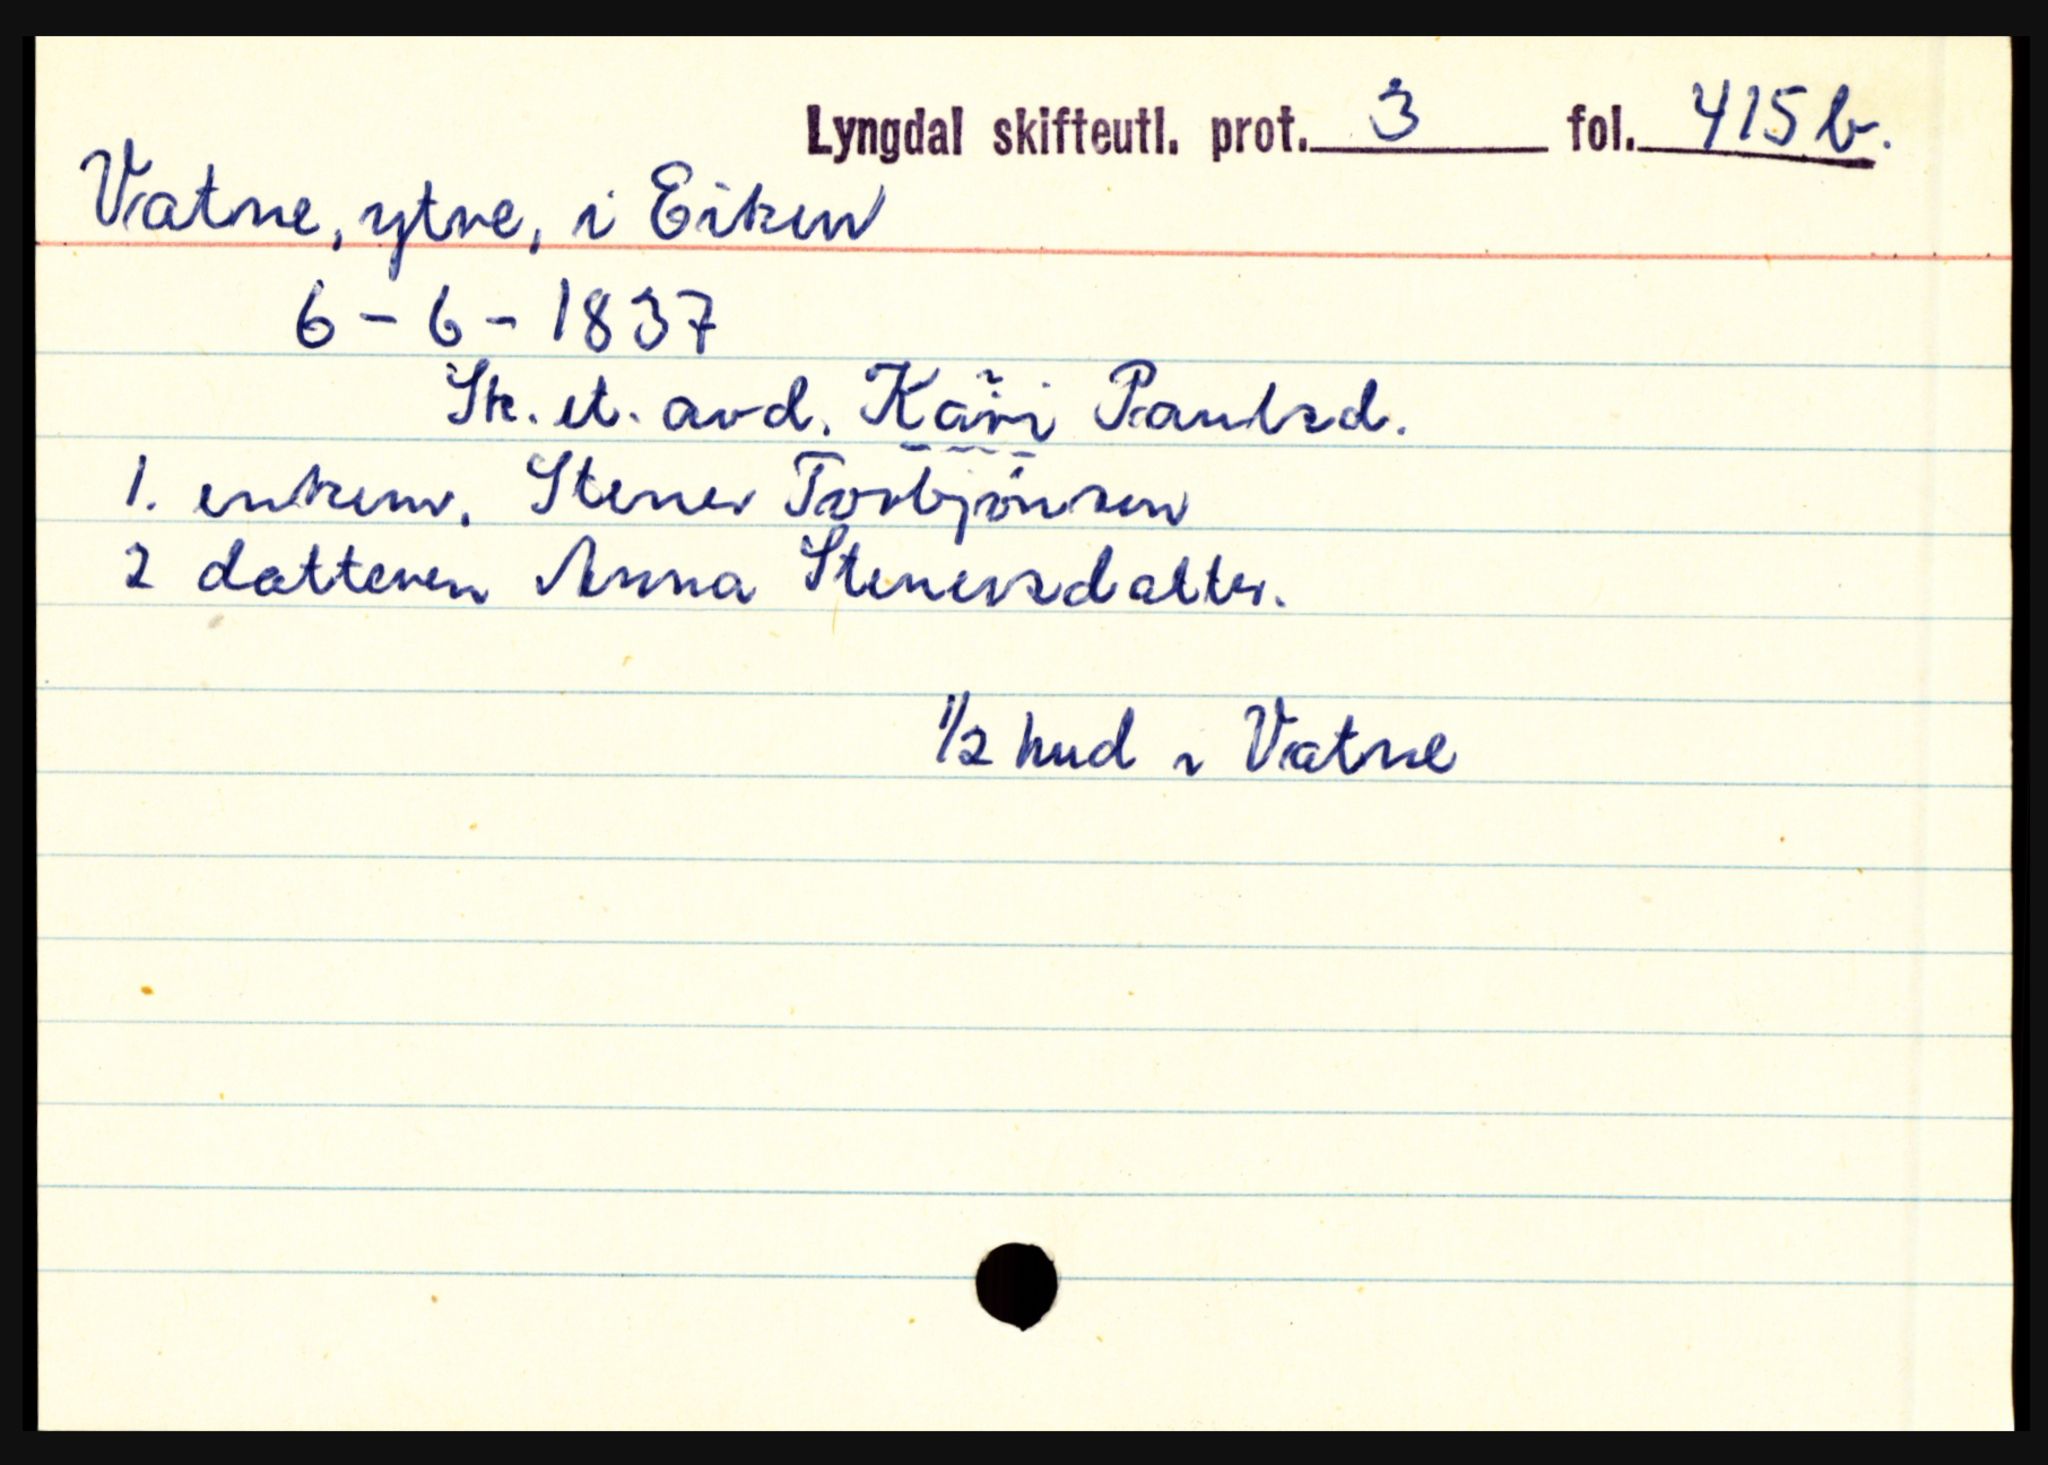 Lyngdal skifteutl. prot. 3 fol. 415 b.
Vatne, ytre, i Eiken
6-6-1837
Sk. et. avd. Kari Paulsd.
1. enkem. Stener Torbjönsen
2 datteren Anna Stenersdatter.
1/2 hud i Vatne